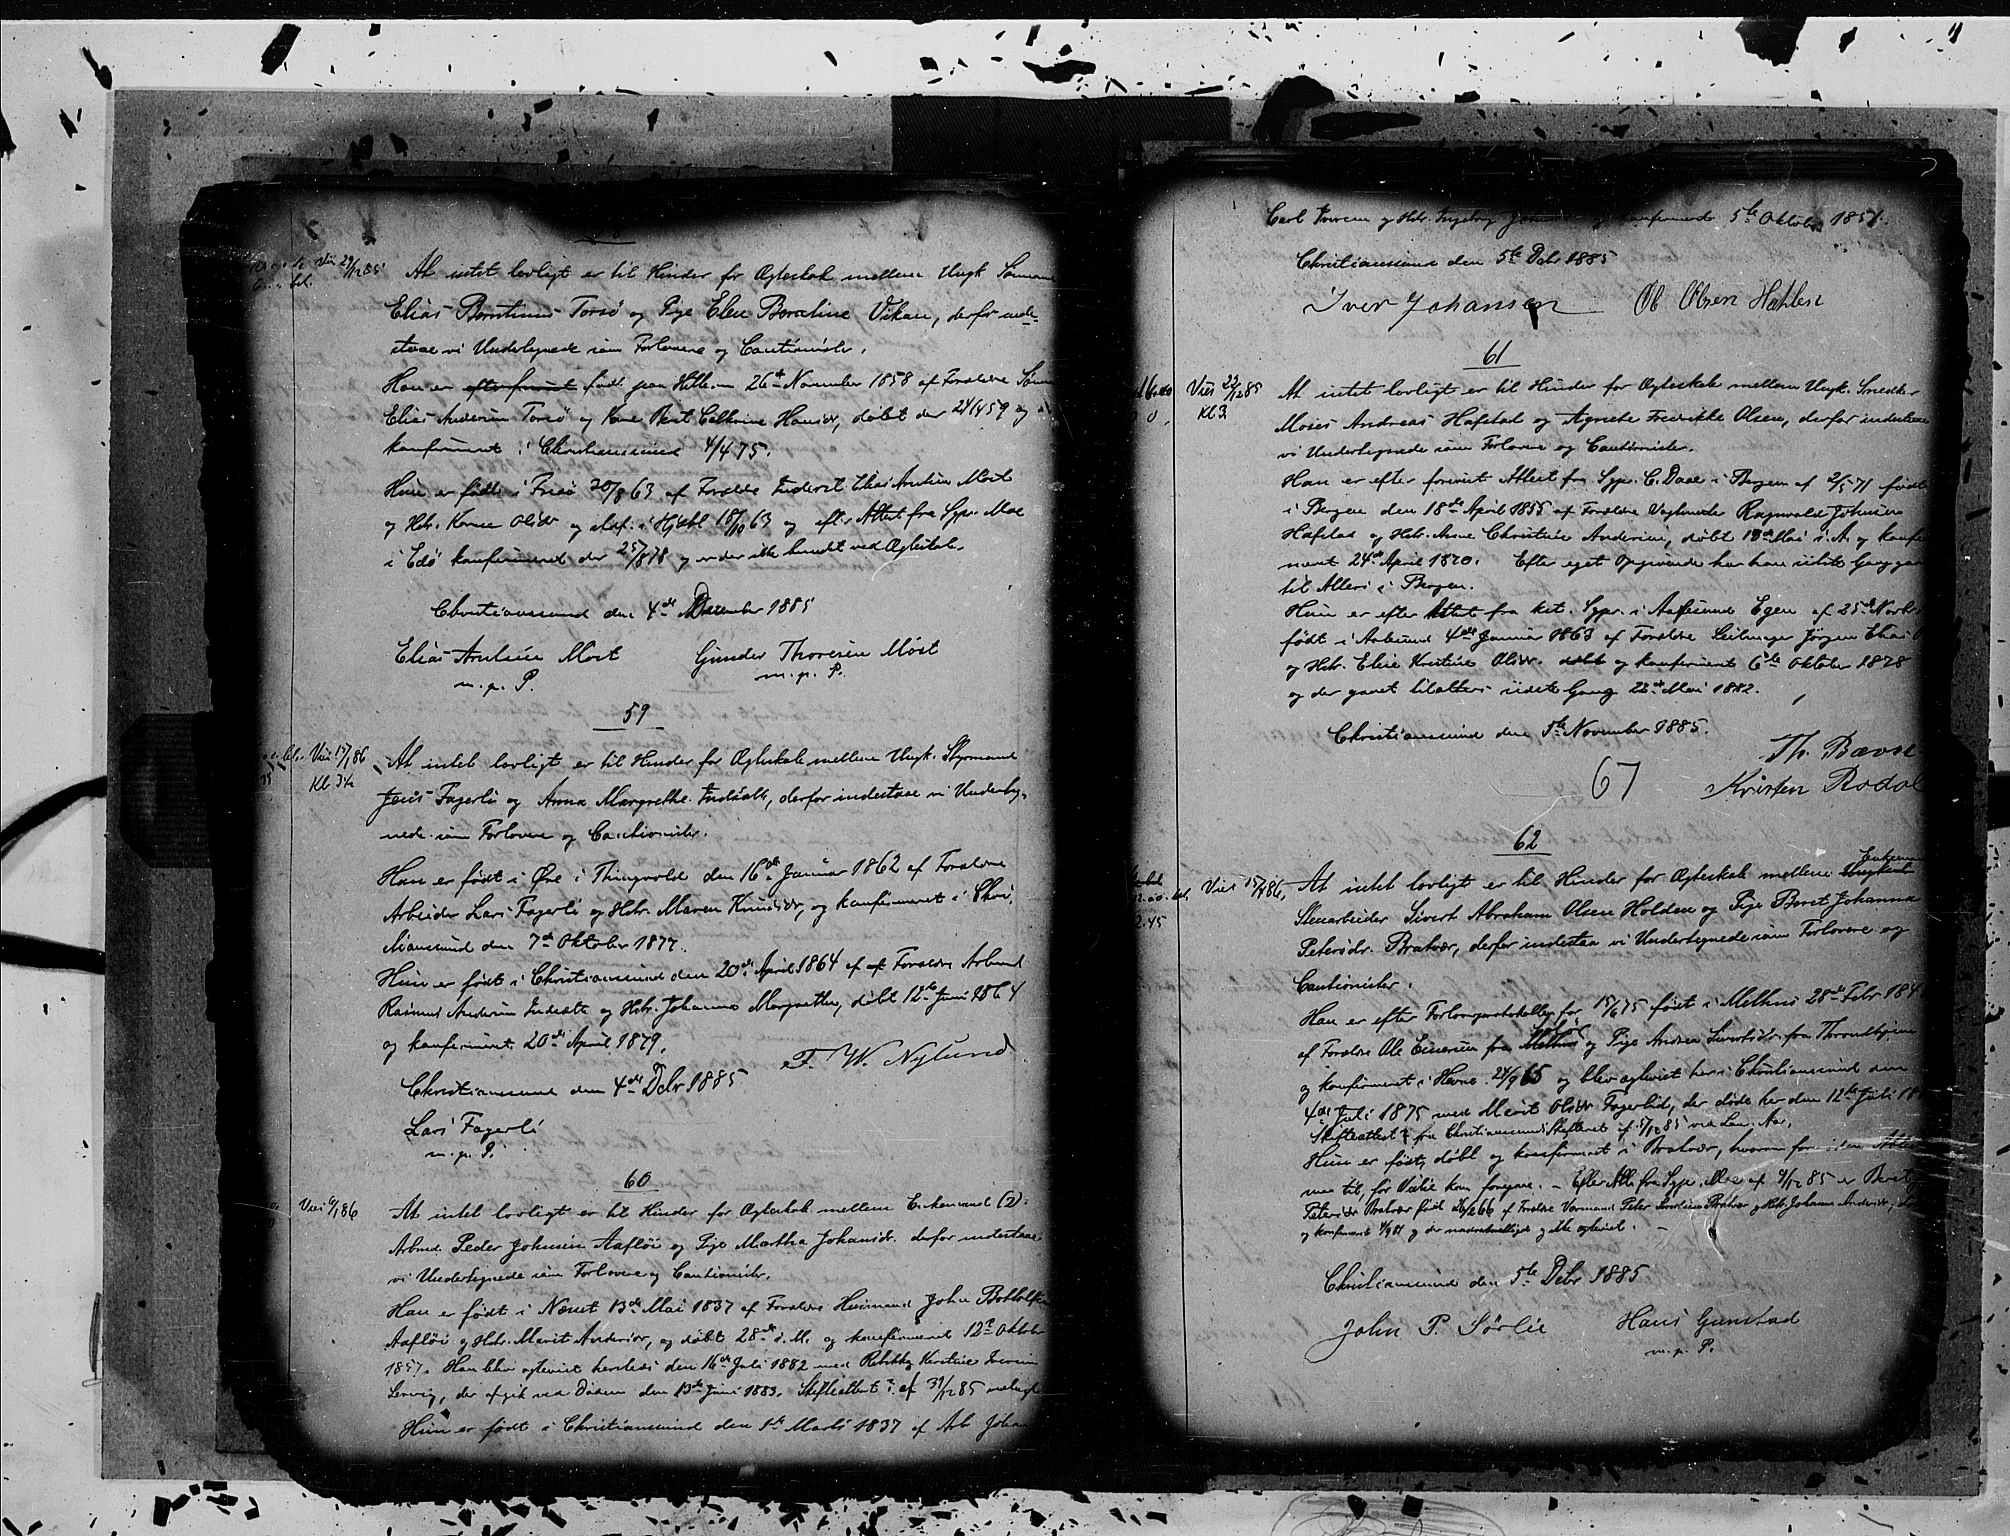 Vies 29/12 85
At intet lovligt er til Hinder for Ægteskab mellem Ungk. Sømand
Elias Torsø og Pige Elen Vikan, derfor inde-
staae vi Undertegnede som Forlovere og Cautionister.
Han er født paa Hitteren 26de November 1858 af Forældre
Elias Andersen Torsø og Kone Cathrine Hansdr, døbt den 24/4 59 og
konfirmeret i Christianssund 4/4 75.
Hun er født i 20/8 63 af Forældre Inderst Elias Arntsen Most
og Hstr. Karen Olsdr og 18/10 63 og efter Attest fra Sgpr. Moe
i Edø konfirmeret den 25/8 78 og er der ikke bundet ved Ægteskab.
Christianssund den 4de December 1885
Elias Arntsen Most Gunder Thoresen Most
m. p. P. m. p. P.
59
Vies 15/1 86
Kl 3½
At intet lovligt er til Hinder for Ægteskab mellem Ungk. Styrmand
Jens Fagerli og Anna Margrethe Indsæth, derfor indestaae vi Underteg-
nede som Forlovere og Cautionister.
Han er født i Øre i Thingvold den 16de Januar 1862 af Forældre
Arbeider Lars Fagerli og Hstr. Maren Knudsdr, og konfirmeret i Chri-
stianssund den 7de Oktober 1877.
Hun er født i Christianssund den 20de April 1864 af af Forældre Arbmd
Rasmus Andersen Indsæth og Hstr. Johanna Margrethe, døbt 12te Juni 1864
og konfirmeret 20de April 1879.
F. W. Nylund
Christianssund den 4de Dcbr 1885
Lars Fagerli
m. p. P.
60
Vies 6/1 86
At intet lovligt er til Hinder for Ægteskab mellem Enkemand (2)
Arbmd. Peder Johnsen Aafløi og Pige Martha Johansdr. derfor indestaae
vi Undertegnede som Forlovere og Cautionister.
Han er født i Næsset 13de Mai 1837 af Forældre Husmand John
Aafløi og Hstr. Marit Andersdr, og døbt 28de s. M. og konfirmeret 12te Oktober
1857. Han blev ægteviet den 16de Juli 1882 med Kirstine Iversen
Lervig, der afgik ved Døden den 13de Juni 1883. Skifteattest af 31/12 85
Hun er født i Christianssund den 1te Marts 1837 af Arb Johan
Carl Iversen og Hstr. Ingeborg konfirmeret 5te Oktober 1851.
Christianssund den 5te Dcbr 1885
Iver Johansen Ol Olsen
61
Vies 29/12 85
Kl 3
At intet lovligt er til Hinder for Ægteskab mellem Ungk. Snedker
Moses Andreas Hafstad og Agnete Fredrikke Olsen, derfor indestaae
vi Undertegnede som Forlovere og Cautionister.
Han er efter forevist Attest fra Sgpr. C. Daae i Bergen af 2/5 71 født
i Bergen den 18de April 1855 af Forældre Ragnvald Johnsen
Hafstad og Hstr. Anne Christine Andersen, døbt 18de Mai s. A. og konfir-
meret 24de April 1870. Efter eget Opgivende har han sidste Gang
til Alters i Bergen.
Hun er efter Attest fra kst. Sgpr. i Aalesund Egen af 25de Novbr
født i Aalesund 4de Januar 1863 af Forældre Seilmager Jørgen Elias
og Hstr. Elise Kristine Olsdr. døbt og konfirmeret 6te Oktober 1878
og der gaaet tilalters sidste Gang 22de Mai 1882.
Christianssund den 5te November 1885.
Th. Bævre
67
Kristen Rodal
62
Vies 15/1 86.
Enkemand
At intet lovligt er til Hinder for Ægteskab mellem Ungkarl
Stenarbeider Sivert Abraham Olsen Holden og Pige Beret Johanna
Petersdr. Bratvær, derfor indestaa vi Undertegnede som Forlovere og
Cautionister.
Han er efter Forlovprotokollen for 15/6 75 født i Melhus 28de Febr 184
af Forældre Ole Einersen fra og Pige Andrea Sivertsdr. fra Throndhjem
og konfirmeret i Hevne 24/9 65 og blev ægteviet her i Christianssund den
4de Juli 1875 med Marit Olsdr Fagerlid, der døde her den 12te Juli 18
Skifteattest fra Christianssunds Skifteret af 5/12 85
Hun er født, døbt og konfirmeret i Bratvær, hvorom
maa til, før Vielse kan foregaae. – Efter Att. fra Sgpr. Moe af 9/12 85 er Beret
Petersdr Bratvær født 26/2 66 af Forældre Peter Bratvær og Hstr. Johanna Andersdr,
og konfirmeret
Christianssund den 5te Dcbr 1885
John P. Sørlie Hans Grimstad
m. p. P.